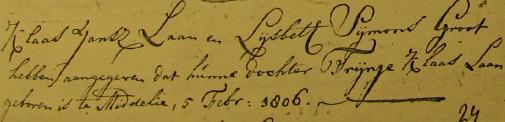 Klaas Jantz Laan en Lijsbeth Sijmons Groot
hebben aangegeven dat hunne dochter Trijnje Klaas Laan
geboren is te Middelie, 5 Febr: 1806.
24